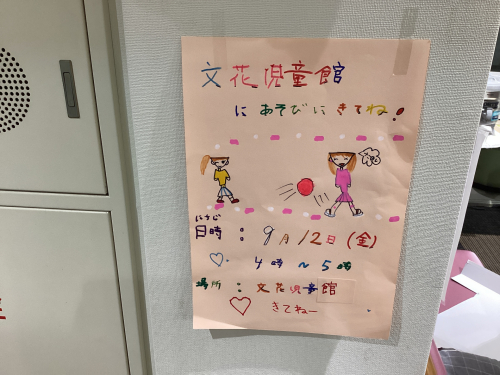 文花児童館
にあそびにきてね!
にちじ
日時:9月12日(金)
♡ 4時~5時
場所:文花児童館
♡ きてねー